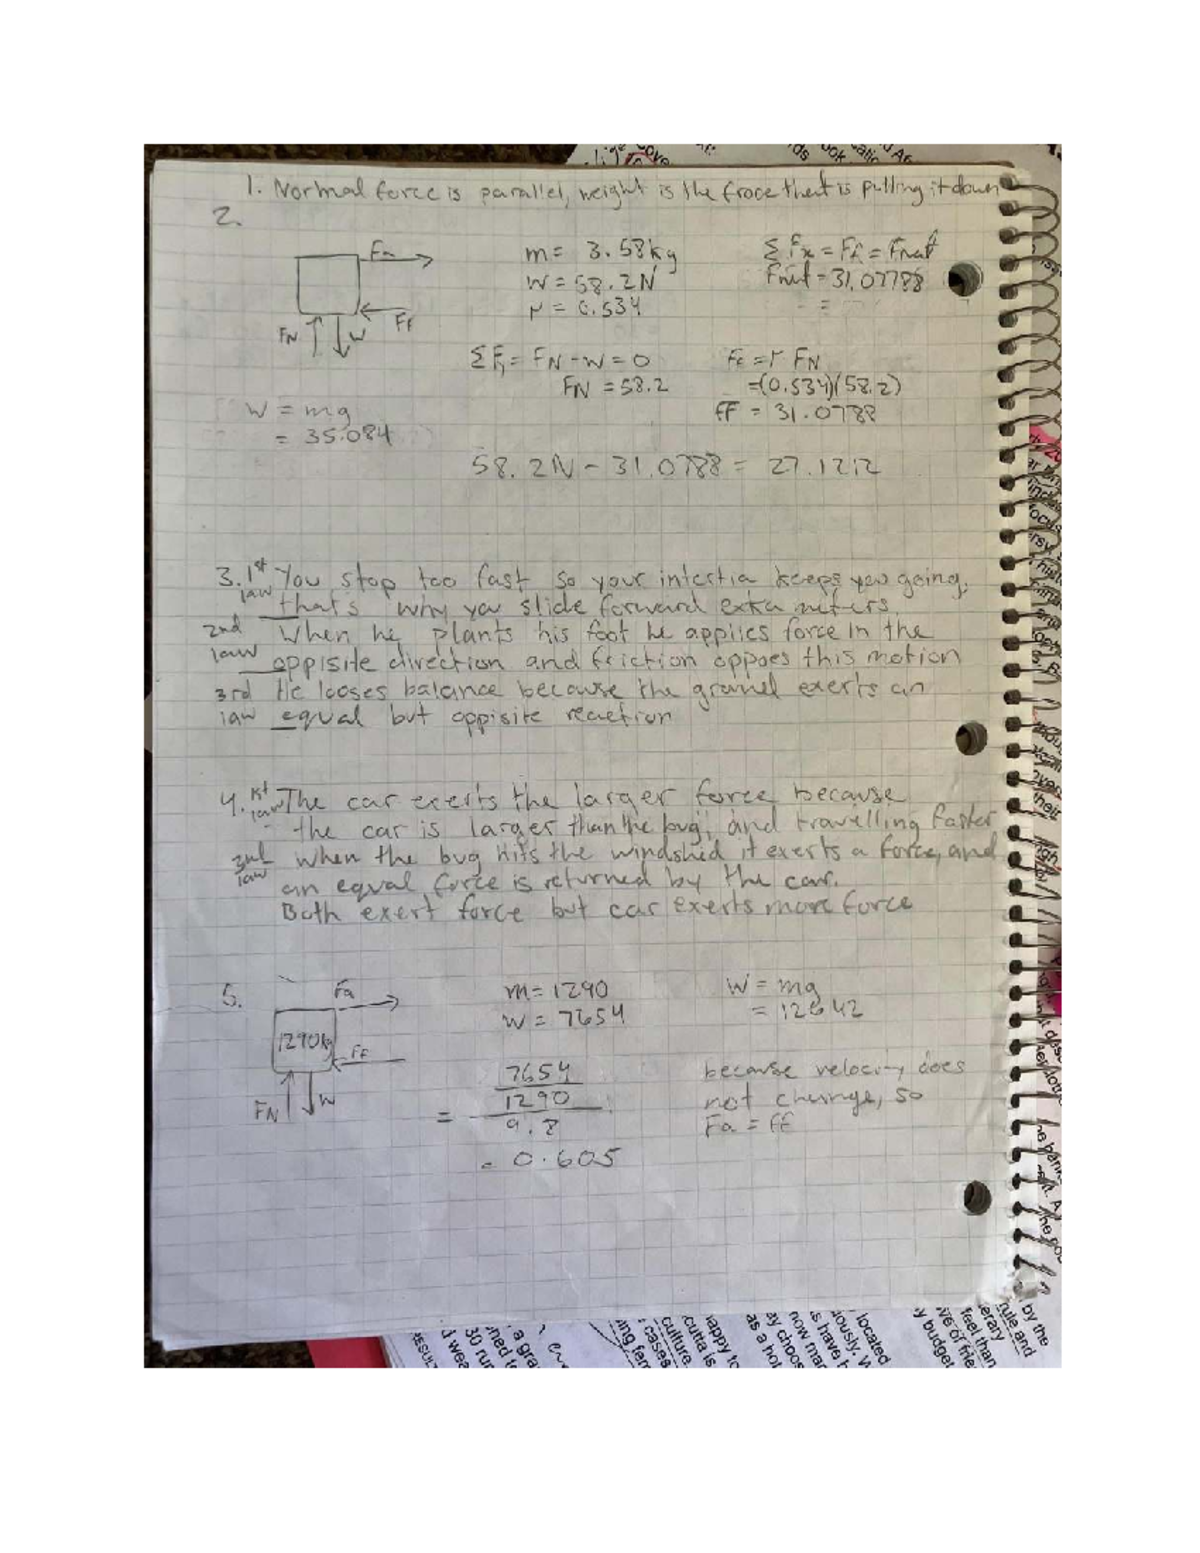 1. Normal force is parallel, weight is the froce that is pulling it down
2.
Fa
Ff
FN
W
m= 3.58kg
W=58.2N
μ = 0.534
Σ Fx = Ff = Fnet
Fnet = 31.07788
=
Σ Fy = FN - W = 0
FN = 58.2
Ff = μ FN
=(0.534)(58.2)
fF = 31.0788
W = mg
= 35.084
58.2N - 31.0788 = 27.1212
3. 1st law You stop too fast so your intertia keeps you going,
that's why you slide forward exta meters.
2nd law When he plants his foot he applies force in the
oppisite direction and friction oppoes this motion
3rd law He looses balance because the gravel exerts an
equal but oppisite reaction
4. 1st law The car exerts the larger force because
the car is larger than the bug, and travelling faster
law when the bug hits the windshid it exerts a force, and
an equal force is returned by the car.
Both exert force but car exerts more force
5.
Fa
1290kg
Ff
FN
W
m= 1290
W = 7654
W = mg
= 12642
7654
1290
=
9.8
= 0.605
because velocity does
not change, so
Fa = ff
by the
rule and
feel than
ve of frie
y budget
located
iously. W
s have
now mar
ay choos
as a hot
happy to
cutta is
culture
cases
ing fem
a gra
ned t
30 rur
d wea
RESULT